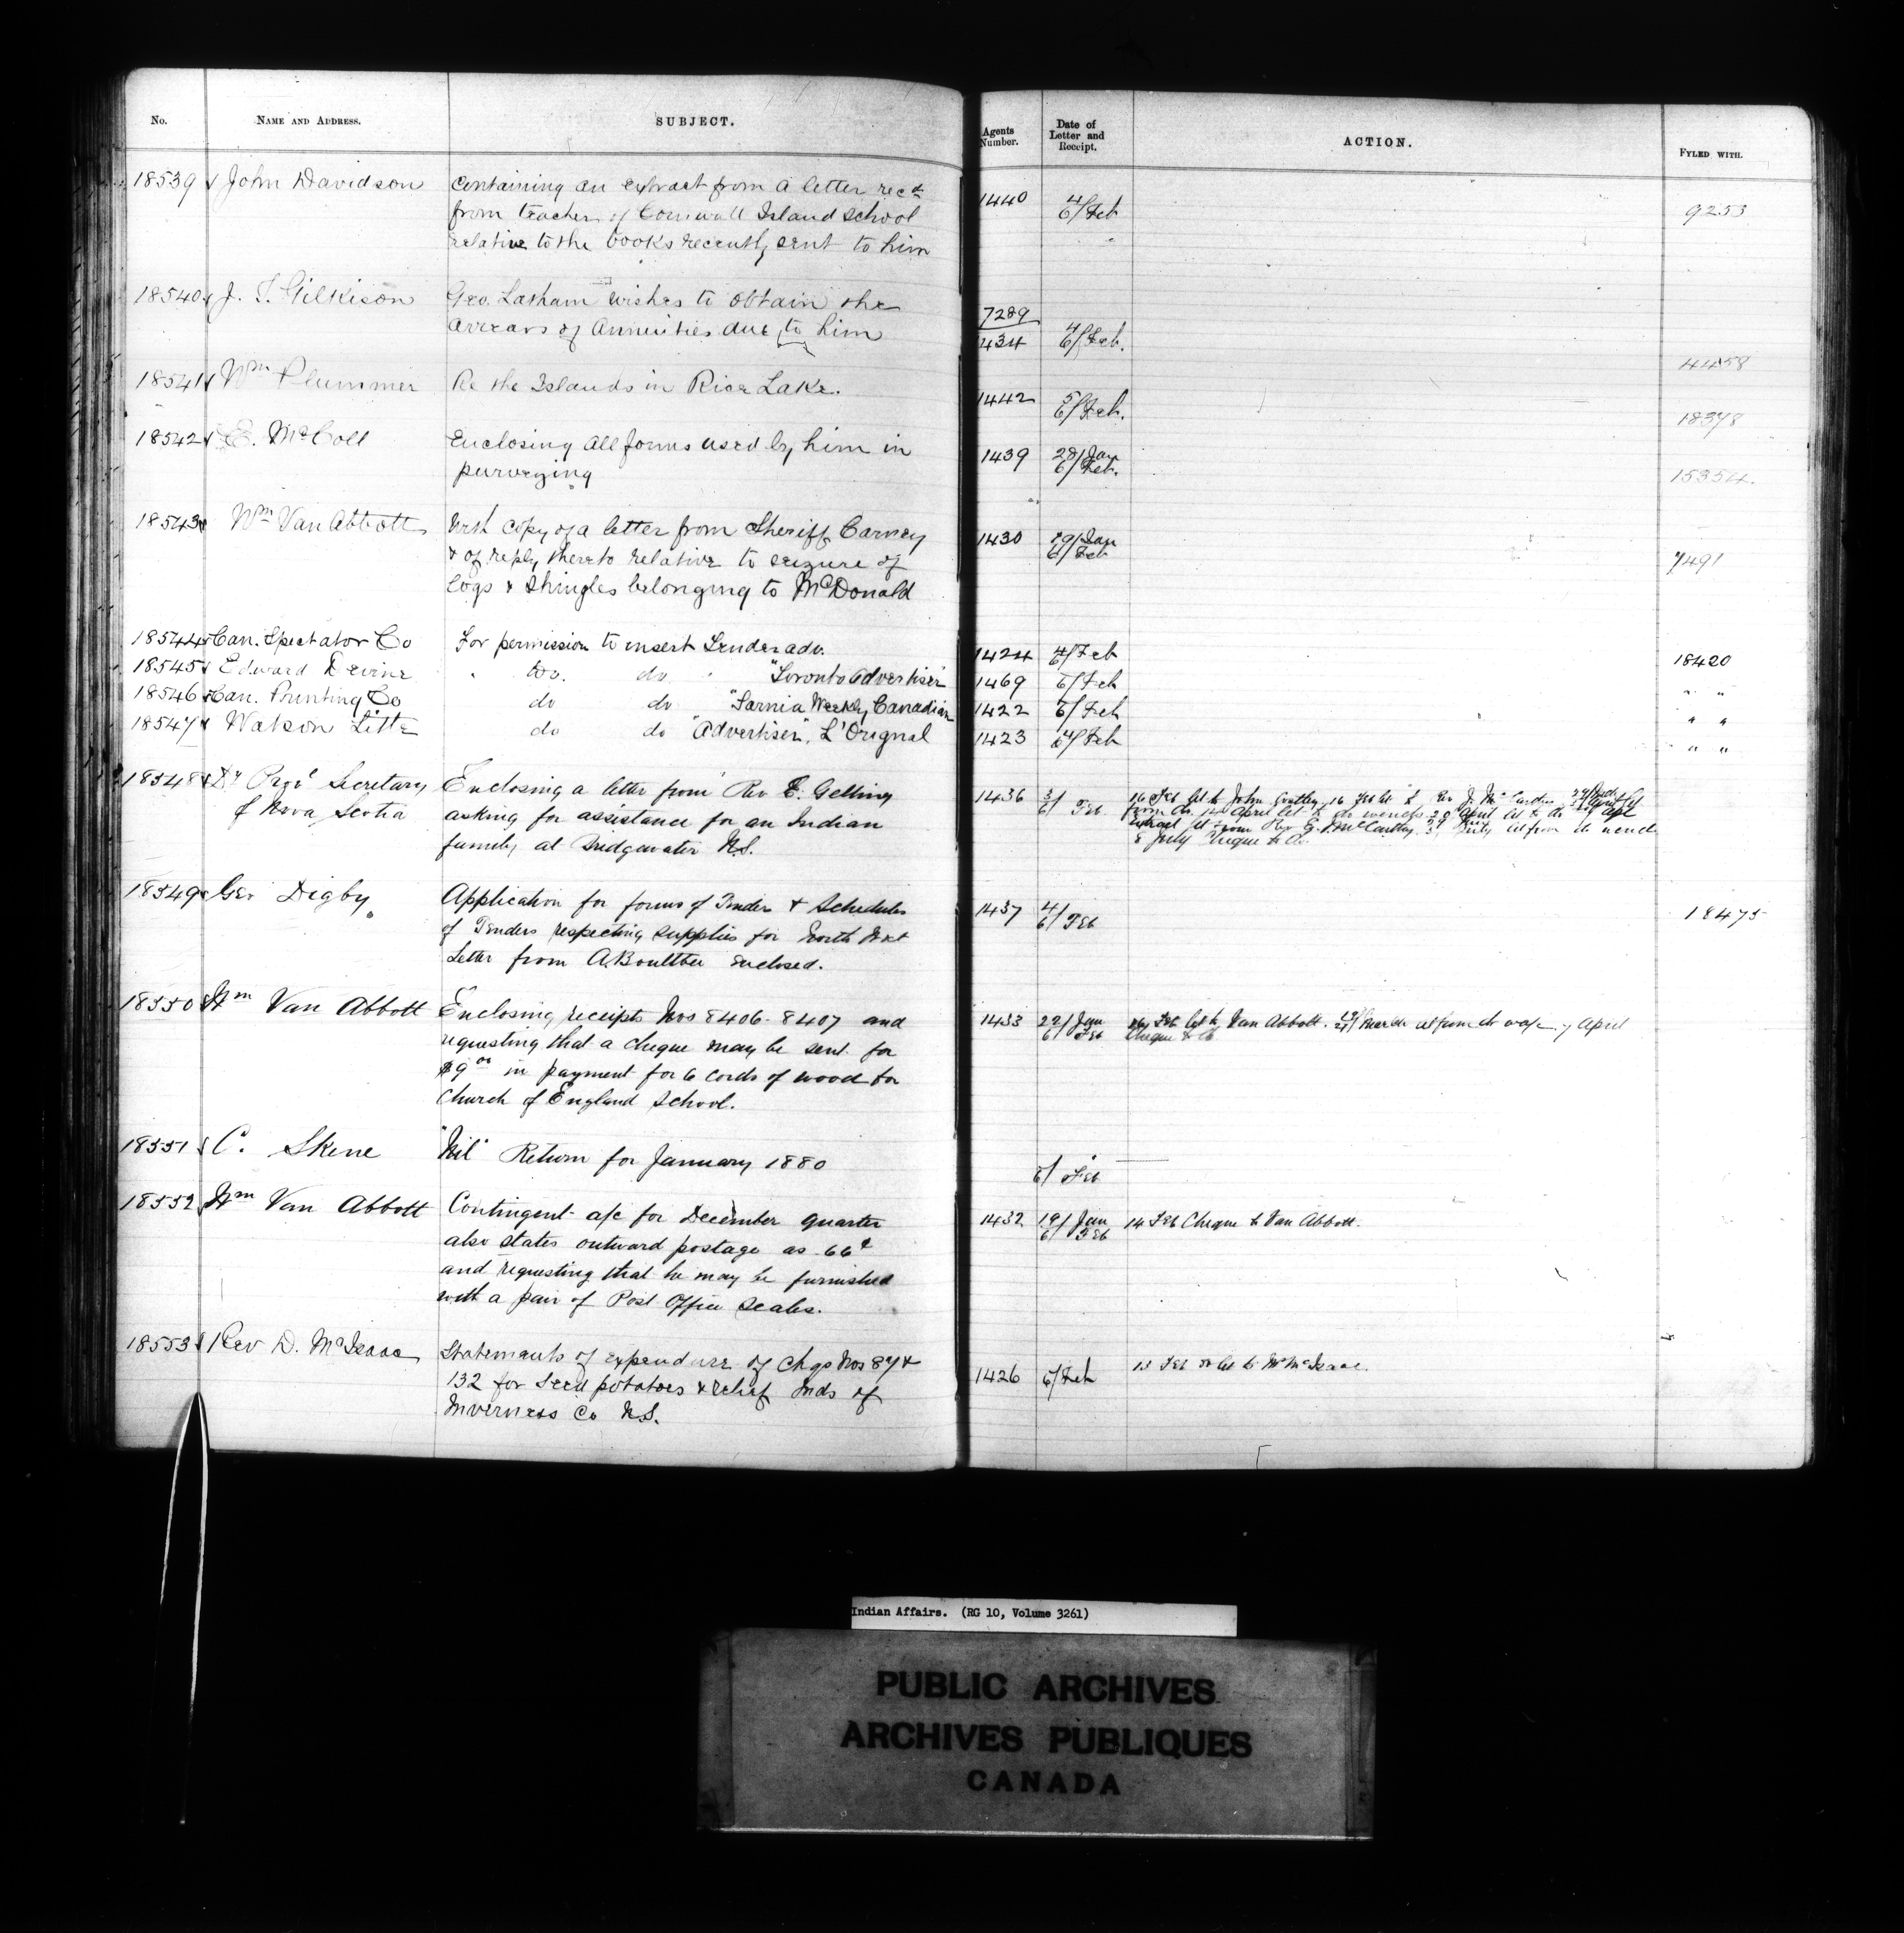 No. NAME AND ADDRESS. SUBJECT. Agents Number. Date of Letter and Receipt. ACTION. FYLED WITH.
18539 John Davidson Containing an extract from a letter recd 1440 4/6/Feb 9253
from teacher of Cornwall Island School
relative to the books recently sent to him
18540 J. T. Gilkison Geo. Latham wishes to obtain the 7289
arrears of annuities due to him 1434 4/6/Feb. 4458
18541 Wm Plummer Re the Islands in Rice Lake. 1442 5/6/Feb. 18378
18542 E. McColl Enclosing all forms used by him in 1439 28/Jan 6/Feb. 15354.
purveying
18543 Wm Van Abbott With copy of a letter from Sheriff Carney 1430 29/Jan 6/Feb 7491
& of reply thereto relative to seizure of
logs & shingles belonging to McDonald
18544 Can. Spectator Co For permission to insert Tender adv. 1424 4/6/Feb 18420
18545 Edward Devine do. do "Toronto Advertiser" 1469 6/Feb " "
18546 Can. Printing Co do do "Sarnia Weekly Canadian 1422 6/Feb " "
18547 Watson Little do do "Advertiser", L'Orignal 1423 4/6/Feb " "
18548 Dy Provl Secretary Enclosing a letter from Rev E. Gelling 1436 3/6/Feb 16 Feb let to John 16 Feb let to Rev J. Mc
of Nova Scotia asking for assistance for an Indian from do. 12 April let to do 20 April let to do
family at Bridgewater N.S. let from Rev E. McCarthy. July let from do
8 July Cheque to do.
18549 Geo Digby Application for forms of Tender & Schedules 1437 4/6/Feb 18475
of Tenders respecting supplies for North West
Letter from A. Boultbee enclosed.
18550 Wm Van Abbott Enclosing receipts Nos 8406-8407 and 1433 22/Jan 6/Feb Feb let to Van Abbott. March let from do 7 April
requesting that a cheque may be sent for Cheque to do
$9 00 in payment for 6 cords of wood for
Church of England School.
18551 C. Skene "Nil" Return for January 1880 6/Feb
18552 Wm Van Abbott Contingent a/c for December quarter 1432 19/Jan 6/Feb 14 Feb Cheque to Van Abbott.
also states outward postage as 66¢
and requesting that he may be furnished
with a pair of Post Office Scales.
18553 Rev D. McIsaac Statements of expenditure of Chqs Nos 87 & 1426 6/Feb 13 Feb let to Mr McIsaac.
132 for Seed potatoes & relief Inds of
Inverness Co N.S.
Indian Affairs. (RG 10, Volume 3261)
PUBLIC ARCHIVES
ARCHIVES PUBLIQUES
CANADA